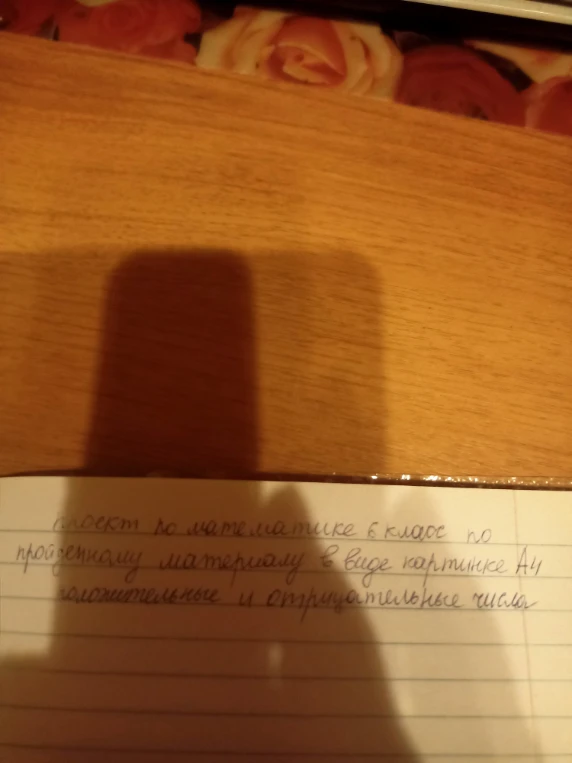 проект по математике 6 класс по
пройденному материалу в виде картинке А4
положительные и отрицательные числа